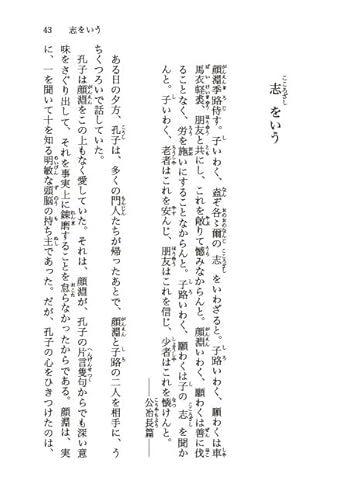 43　志をいう
志をいう
顔淵季路侍す。子いわく、盍ぞ各〻爾の志をいわざると。子路いわく、願わくは車
馬衣軽裘、朋友と共にし、これを敝りて憾みなからんと。顔淵いわく、願わくは善に伐
ることなく、労を施いにすることなからんと。子路いわく、願わくは子の志を聞か
んと。子いわく、老者はこれを安んじ、朋友はこれを信じ、少者はこれを懐けんと。
――公冶長篇――
ある日の夕方、孔子は、多くの門人たちが帰ったあとで、顔淵と子路の二人を相手に、う
ちくつろいで話していた。
孔子は顔淵をこの上もなく愛していた。それは、顔淵が、孔子の片言隻句からでも深い意
味をさぐり出して、それを事実上に錬磨することを怠らなかったからである。顔淵は、実
に、一を聞いて十を知る明敏な頭脳の持ち主であった。だが、孔子の心をひきつけたのは、